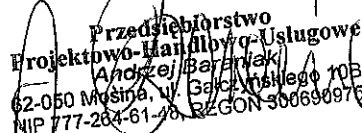 Przedsiębiorstwo
Projektowo-Handlowo-Usługowe
Andrzej Baraniak
62-050 Mosina, ul. Gałczyńskiego 10B
NIP 777-264-61-48, REGON 300690976